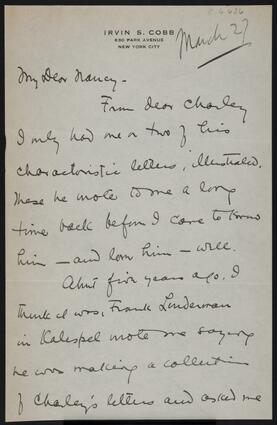 IRVIN S. COBB
630 PARK AVENUE
NEW YORK CITY
March 27
My Dear Nancy -
From dear Charley
I only had one or two of his
characteristic letters, illustrated.
These he wrote to me a long
time back before I came to know
him - and love him - well.
About five years ago, I
think it was, Frank Linderman
in Kalispel wrote me saying
he was making a collection
of Charley's letters and asked me